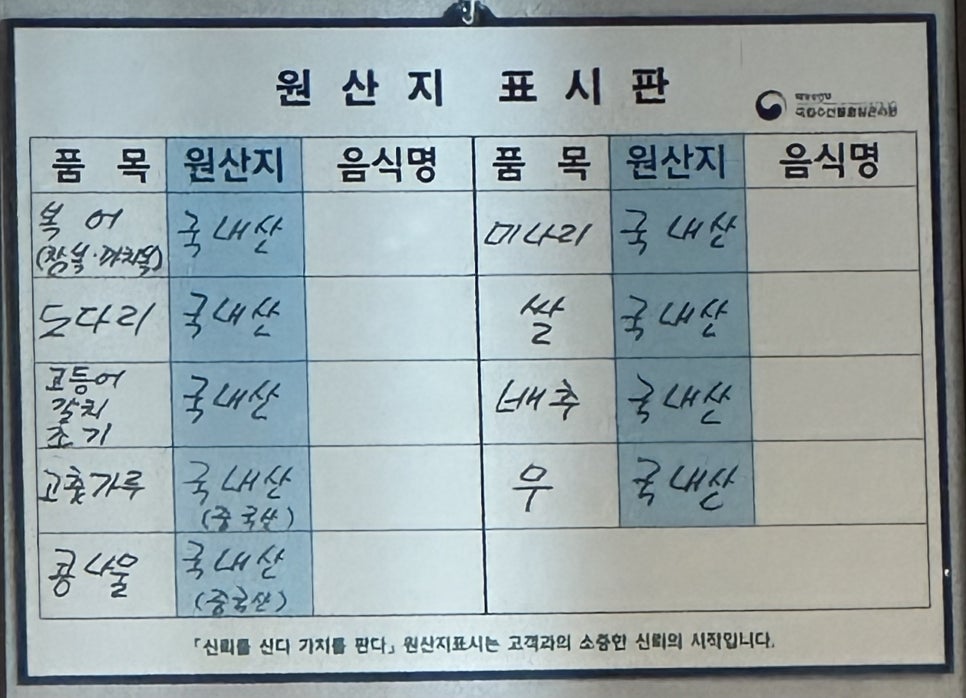 원산지 표시판
품목 원산지 음식명 품목 원산지 음식명
복어 국내산 미나리 국내산
(참복·까치복)
도다리 국내산 쌀 국내산
고등어 국내산 배추 국내산
갈치
조기
고춧가루 국내산 무 국내산
(중국산)
콩나물 국내산
(중국산)
「신뢰를 산다 가치를 판다」 원산지표시는 고객과의 소중한 신뢰의 시작입니다.